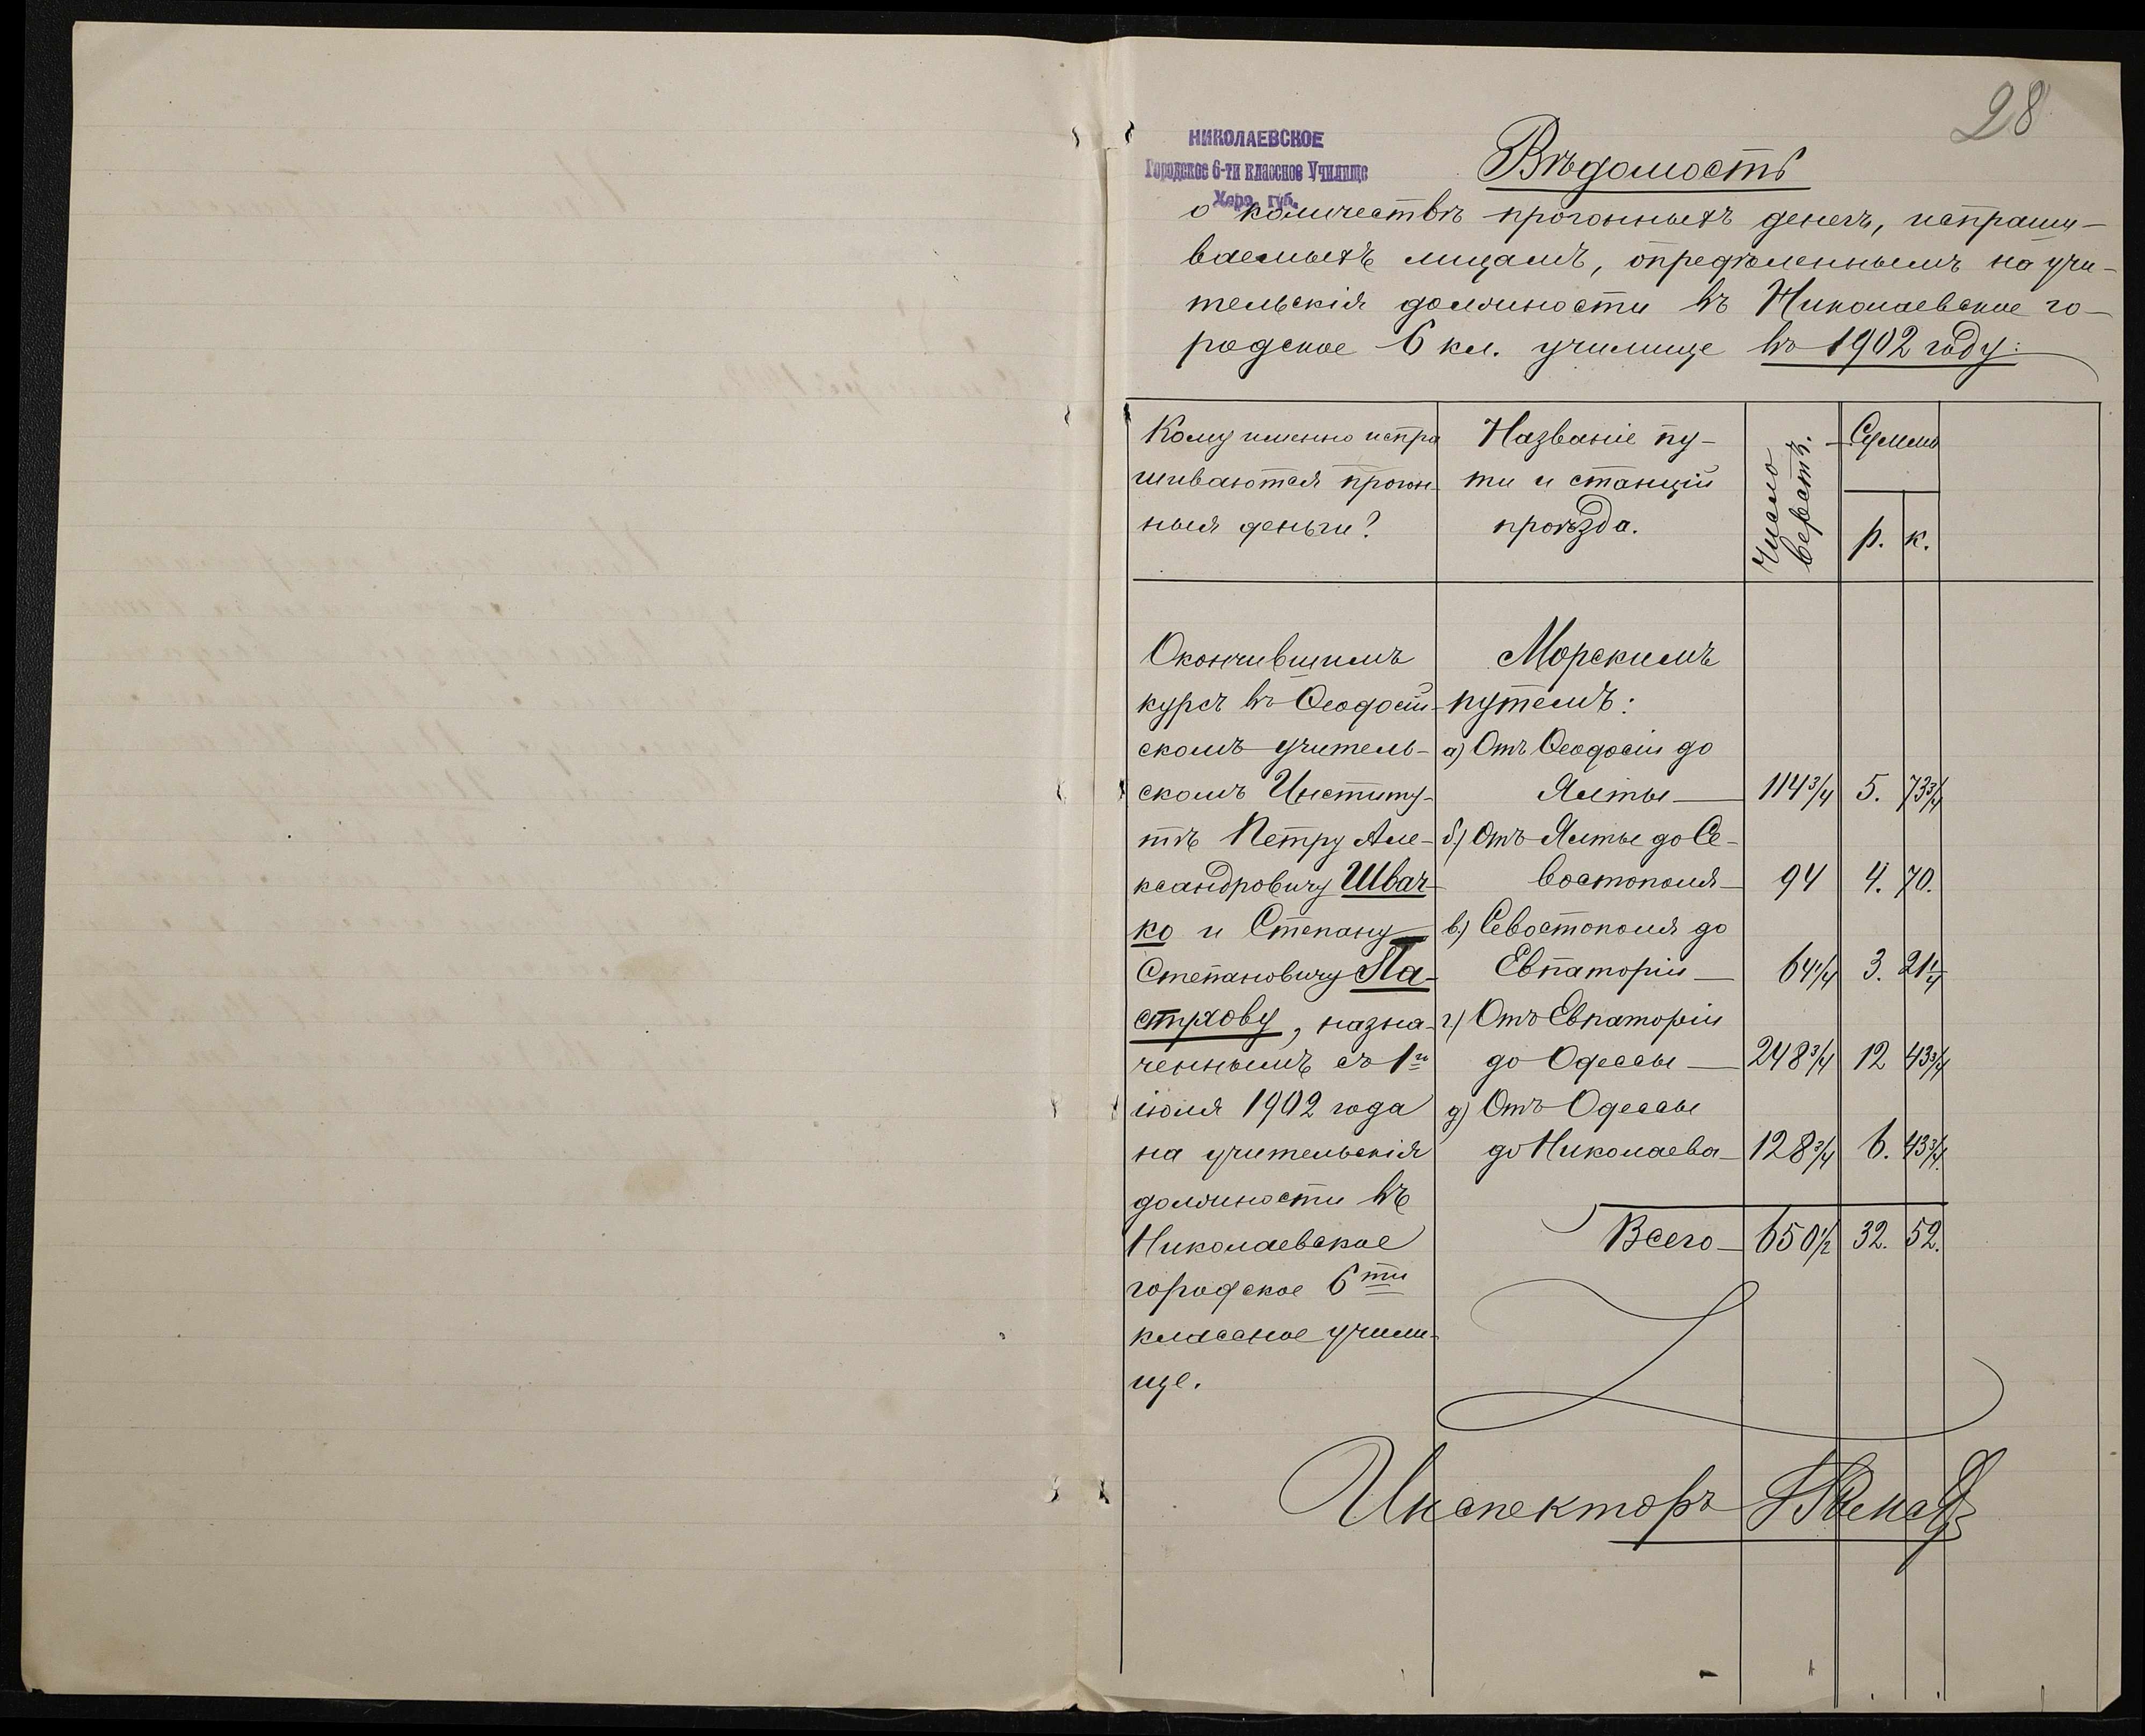 28
НИКОЛАЕВСКОЕ
Городское 6-ти классное Училище
Херс. губ.
Вѣдомость
о количествѣ прогонныхъ денегъ, испраши-
ваемыхъ лицамъ, опредѣленнымъ на учи-
тельскія должности въ Николаевское го-
родское 6 кл. училище въ 1902 году:
Кому именно испра
шиваются прогон-
ныя деньги?
Названіе пу-
ти и станцій
проѣзда.
Число
верстъ.
Сумма
р. к.
Окончившимъ
курсъ въ Ѳеодосій-
скомъ учитель-
скомъ Институ-
тѣ Петру Але-
ксандровичу Швач-
ко и Степану
Степановичу Па-
стухову, назна-
ченнымъ съ 1го
іюля 1902 года
на учительскія
должности въ
Николаевское
городское 6ти
классное учили-
ще.
Морскимъ
путемъ:
а) Отъ Ѳеодосіи до
Ялты — 114 3/4 5. 73 3/4
б) Отъ Ялты до Се-
востополя — 94 4. 70.
в) Севостополя до
Евпаторіи — 64 1/4 3. 21 1/4
г) Отъ Евпаторіи
до Одессы — 248 3/4 12 43 3/4
д) Отъ Одессы
до Николаева — 128 3/4 6. 43 3/4
Всего — 650 1/2 32. 52.
Инспекторъ